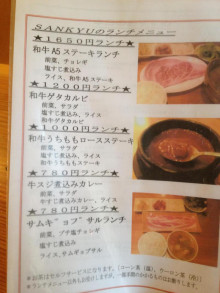 SANKYUのランチメニュー
★1650円ランチ★
和牛A5ステーキランチ
前菜、チョレギ
塩すじ煮込み
ライス、和牛A5ステーキ
★1200円ランチ★
和牛ゲタカルビ
前菜、サラダ
塩すじ煮込み、ライス
和牛ゲタカルビ
★1000円ランチ★
和牛うちももロースステーキ
前菜、サラダ
やすじ煮込み、ライス
★780円ランチ★
牛スジ煮込みカレー
前菜、サラダ
牛すじ煮込みカレー
★780円ランチ★
サムギョプサルランチ
前菜、プチ塩チョレギ
塩すじ煮込み
ライス、サムギョプサル